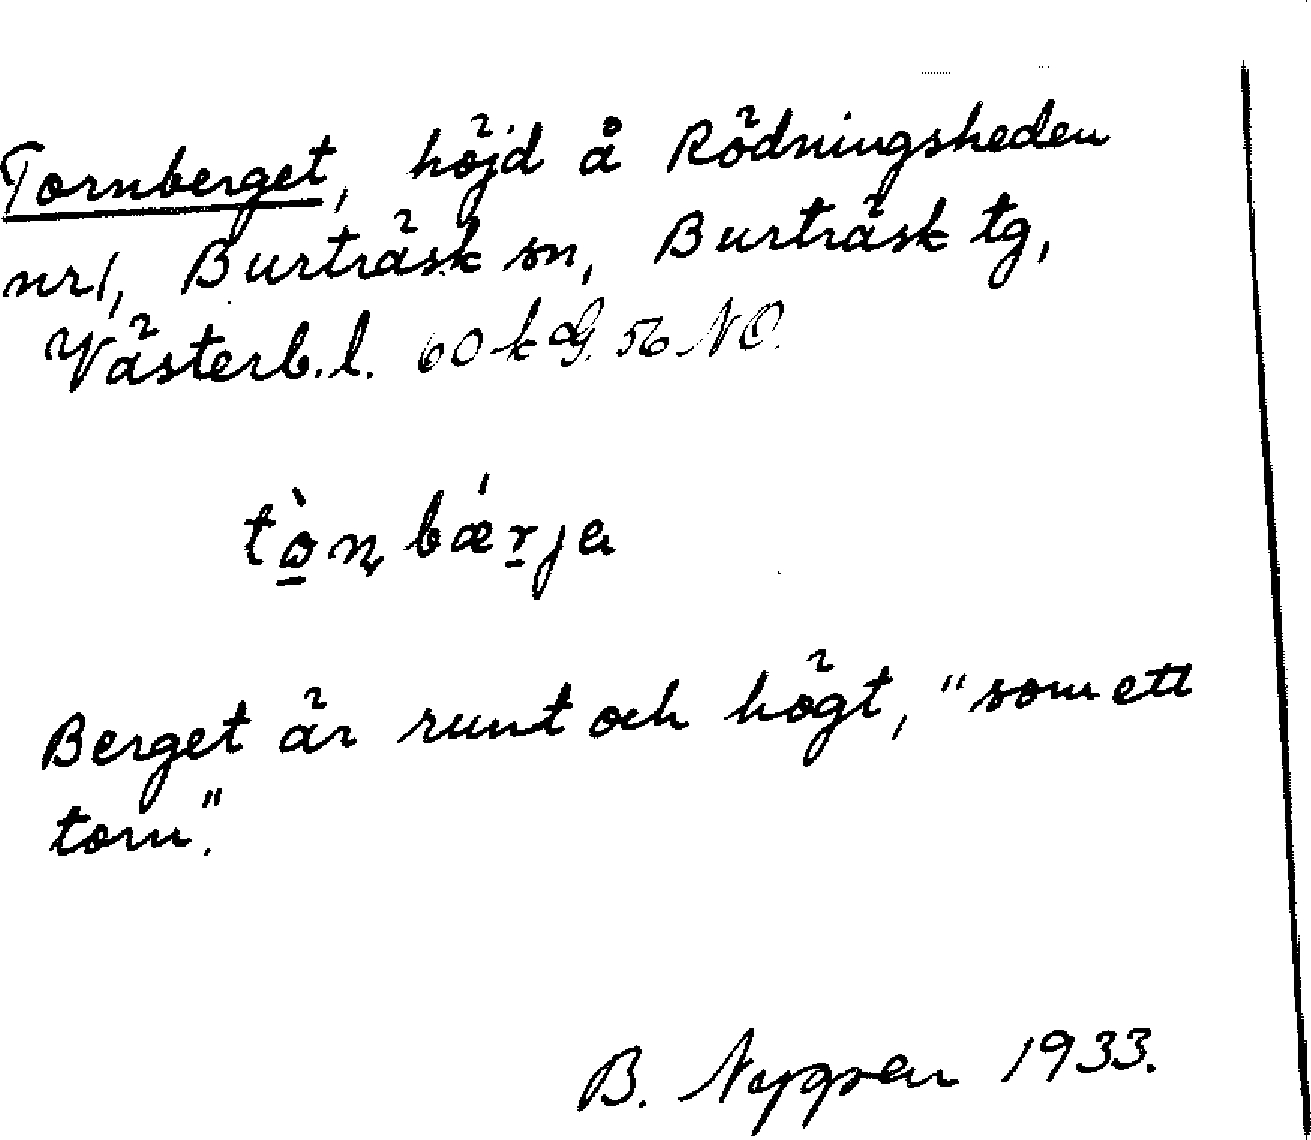 Tornberget, höjd å Rödningsheden
nr 1, Burträsk sn, Burträsk tg,
Västerb. l. 60 k G. 56 NO.
tò̠ɳbǽr̠ja
Berget är runt och högt, "som ett
torn".
B. Nygren 1933.